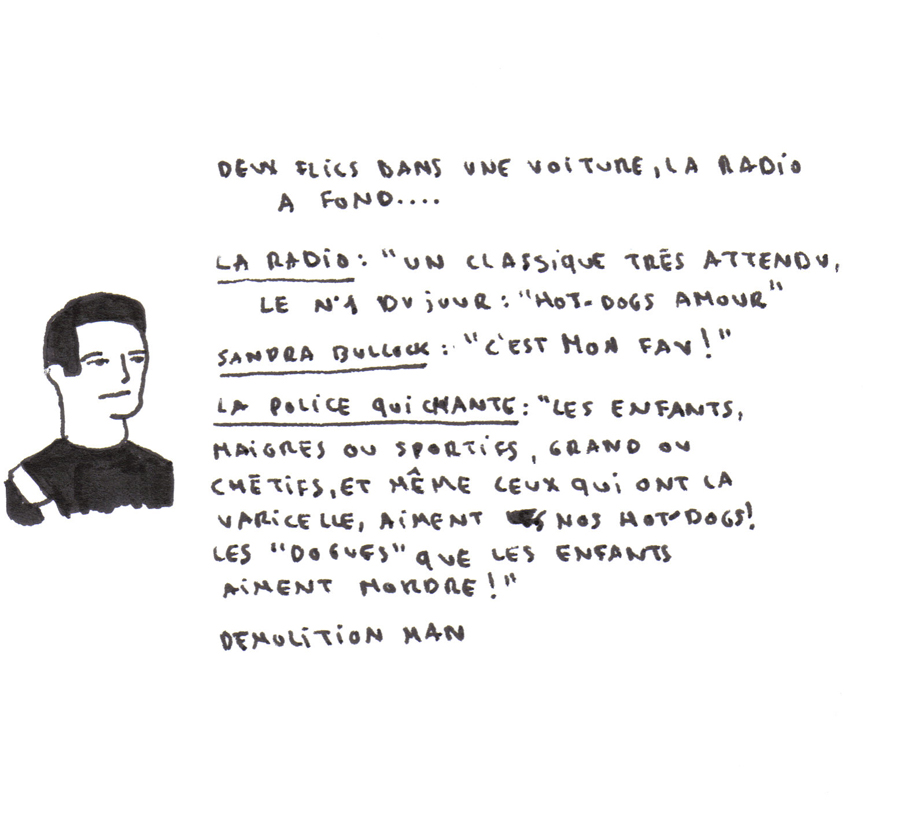 DEUX FLiCS DANS UNE VOiTURE, LA RADiO
A FOND....
LA RADiO : "UN CLASSiQUE TRÈS ATTENDU,
LE N°1 DU jOUR : "HOT-DOGS AMOUR"
SANDRA BULLOCK : "C'EST MON FAV !"
LA POLiCE qUi CHANTE : "LES ENFANTS,
MAiGRES OU SPORTiFS, GRAND OU
CHÉTiFS, ET MÊME CEUX QUi ONT LA
VARiCELLE, AiMENT NOS HOT-DOGS!
LES "DOGUES" qUE LES ENFANTS
AiMENT MORDRE !"
DEMOLiTiON MAN